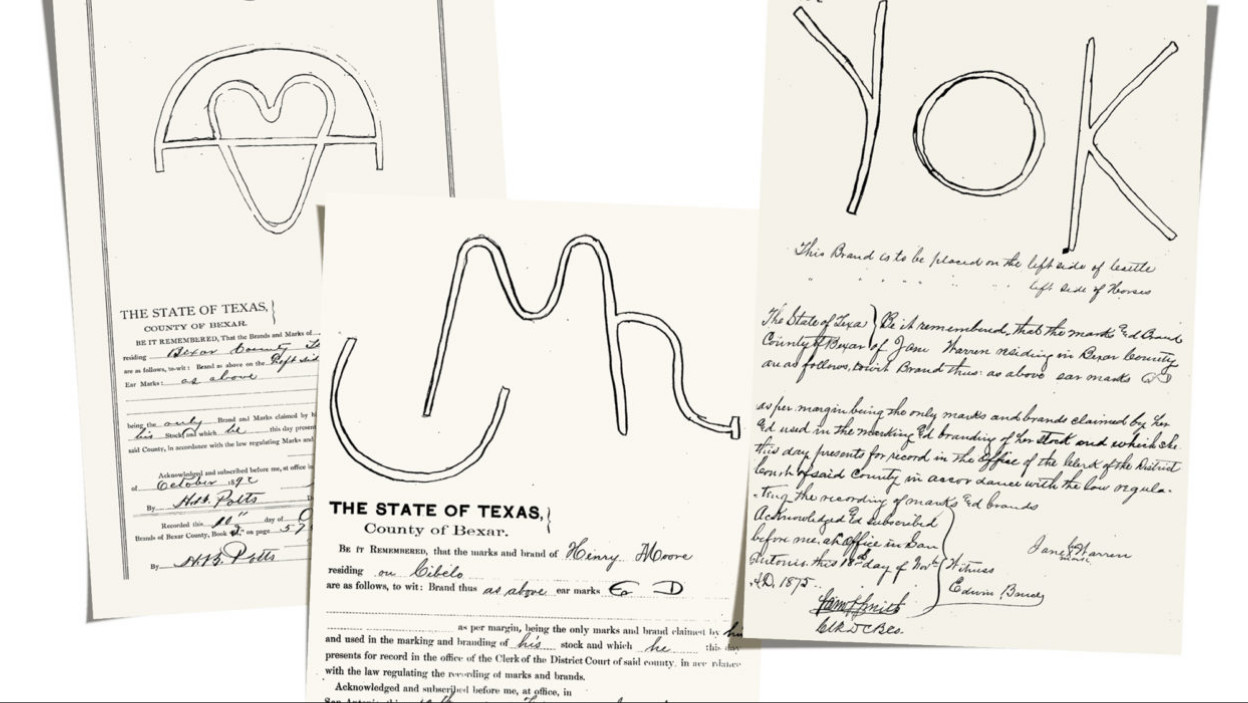 THE STATE OF TEXAS,
COUNTY OF BEXAR.
BE IT REMEMBERED, That the Brands and Marks of
residing Bexar County
are as follows, to-wit: Brand as above on the Left sid
Ear Marks: as above
being the only Brand and Marks claimed by h
his Stock and which he this day present
said County, in accordance with the law regulating Marks and
Acknowledged and subscribed before me, at office
of October 189
By H.H. Potts
Recorded this 11" day of O
Brands of Bexar County, Book on page 57
By H.H. Potts
M h
THE STATE OF TEXAS,
County of Bexar.
BE IT REMEMBERED, that the marks and brand of Henry Moore
residing on Cibolo
are as follows, to wit: Brand thus as above ear marks
as per margin, being the only marks and brand claimed by his
and used in the marking and branding of his stock and which he this day
presents for record in the office of the Clerk of the District Court of said county, in accordance
with the law regulating the recording of marks and brands.
Acknowledged and subscribed before me, at office, in
San Antonio this
Y O K
This Brand is to be placed on the left side of Cattle
" " " " " " left side of Horses
The State of Texa } Be it remembered, that the mark &d Brand
County of Bexar of Jane Warren residing in Bexar County
are as follows, towit Brand thus: as above ear marks
as per margin being the only marks and brands claimed by her
&d used in the marking &d branding of her stock and which she
this day presents for record in the Office of the Clerk of the District
Court of said County in accordance with the law regula-
-ting the recording of marks &d brands
Acknowledged &d subscribed
before me, at Office in San
Antonio this 18th day of Novb
A.D. 1875.
Jane Warren
Witness
Edwin
Sam S Smith
Clk D C B Co.